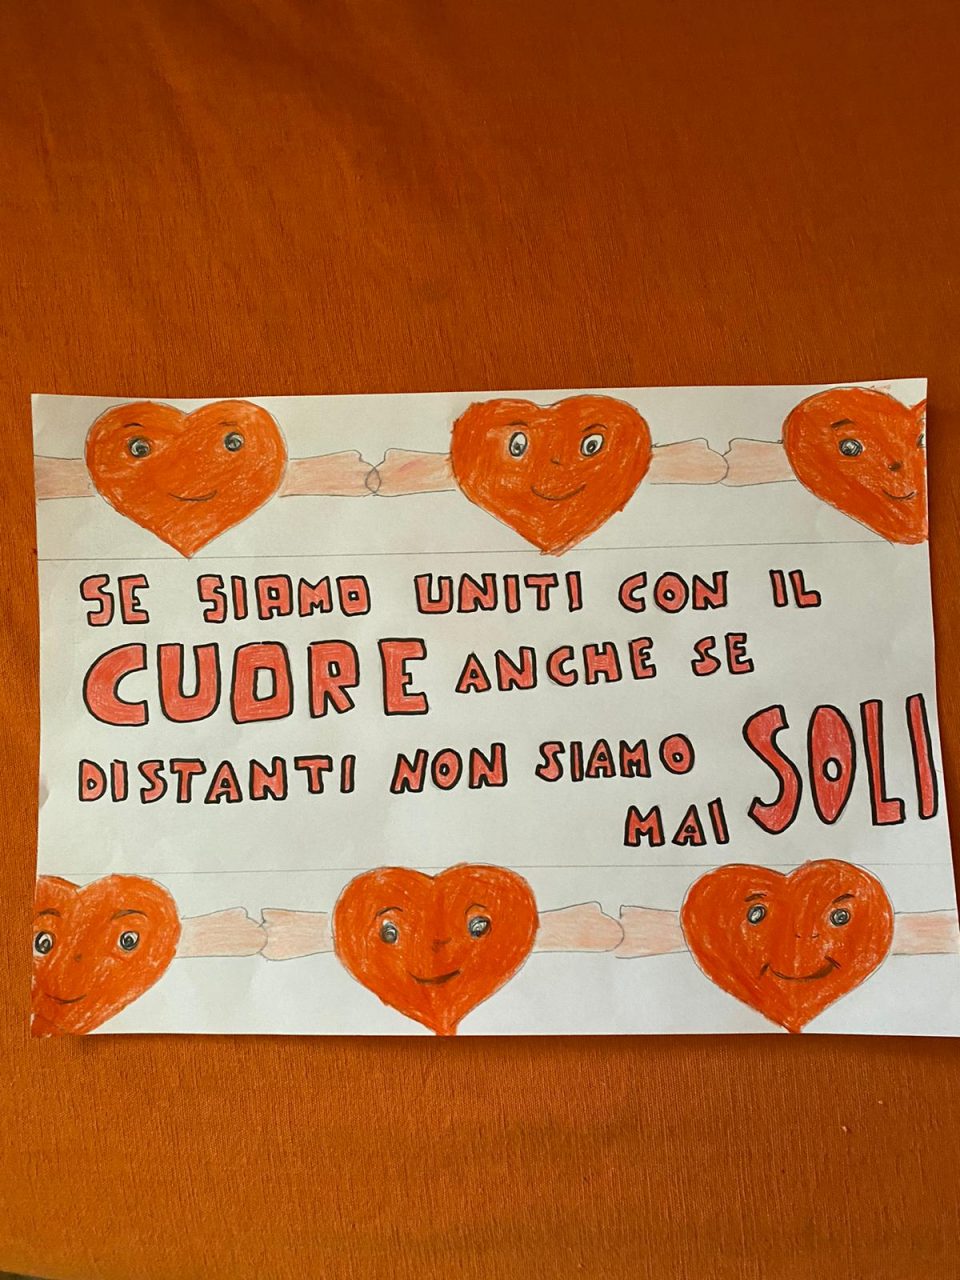 SE SIAMO UNITI CON IL
CUORE ANCHE SE
DISTANTI NON SIAMO SOLI
MAI